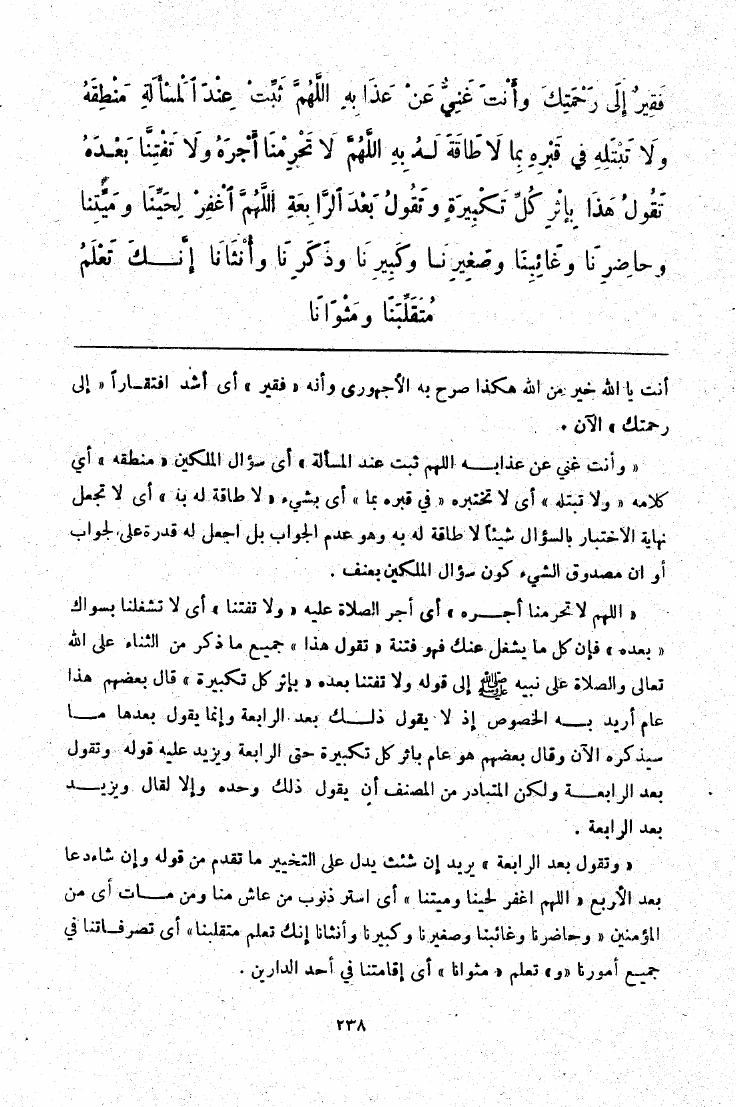 فَقِيرٌ إِلَى رَحْمَتِكَ وأَنْتَ غَنِيٌّ عَنْ عَذَابِهِ اللَّهُمَّ ثَبِّتْ عِنْدَ ٱلْمَسْأَلَةِ مَنْطِقَهُ
ولَا تَبْتَلِهِ فِي قَبْرِهِ بِمَا لَا طَاقَةَ لَهُ بِهِ اللَّهُمَّ لَا تَحْرِمْنَا أَجْرَهُ ولَا تَفْتِنَّا بَعْدَهُ
تَقُولُ هَذَا بِإثْرِ كُلِّ تَكْبِيرَةٍ وتَقُولُ بَعْدَ ٱلرَّابِعَةِ اللَّهُمَّ ٱغْفِرْ لِحَيِّنَا ومَيِّتِنا
وحاضِرِنَا وغَائِبِنَا وصَغِيرِنَا وكَبِيرِنَا وذَكَرِنَا وأُنْثَانَا إِنَّكَ تَعْلَمُ
مُتَقَلَّبَنَا ومَثْوَانَا
أنت يا الله خير من الله هكذا صرح به الأجهورى وأنه « فقير » أى أشد افتقاراً « إلى
رحمتك » الآن .
« وأنت غني عن عذابه اللهم ثبت عند المسألة » أى سؤال الملكين « منطقه » أي
كلامه « ولا تبتله » أى لا تختبره « في قبره بما » أى بشيء « لا طاقة له به » أى لا تجعل
نهاية الاختبار بالسؤال شيئاً لا طاقة له به وهو عدم الجواب بل اجعل له قدرة على لجواب
أو ان مصدوق الشيء كون سؤال الملكين بعنف .
« اللهم لا تحرمنا أجره » أى أجر الصلاة عليه « ولا تفتنا » أى لا تشغلنا بسواك
« بعده » فإن كل ما يشغل عنك فهو فتنة « تقول هذا » جميع ما ذكر من الثناء على الله
تعالى والصلاة على نبيه ﷺ إلى قوله ولا تفتنا بعده « بإثر كل تكبيرة » قال بعضهم هذا
عام أريد به الخصوص إذ لا يقول ذلك بعد الرابعة وإنما يقول بعدها ما
سيذكره الآن وقال بعضهم هو عام باثر كل تكبيرة حتى الرابعة ويزيد عليه قوله وتقول
بعد الرابعة ولكن المتبادر من المصنف أن يقول ذلك وحده وإلا لقال ويزيد
بعد الرابعة .
« وتقول بعد الرابعة » يريد إن شئت يدل على التخيير ما تقدم من قوله وإن شاء دعا
بعد الأربع « اللهم اغفر لحينا وميتنا » أى استر ذنوب من عاش منا ومن مات أى من
المؤمنين « وحاضرنا وغائبنا وصغيرنا وكبيرنا وأنثانا إنك تعلم متقلبنا» أى تصرفاتنا في
جميع أمورنا «و» تعلم « مثوانا » أى إقامتنا في أحد الدارين .
٢٣٨